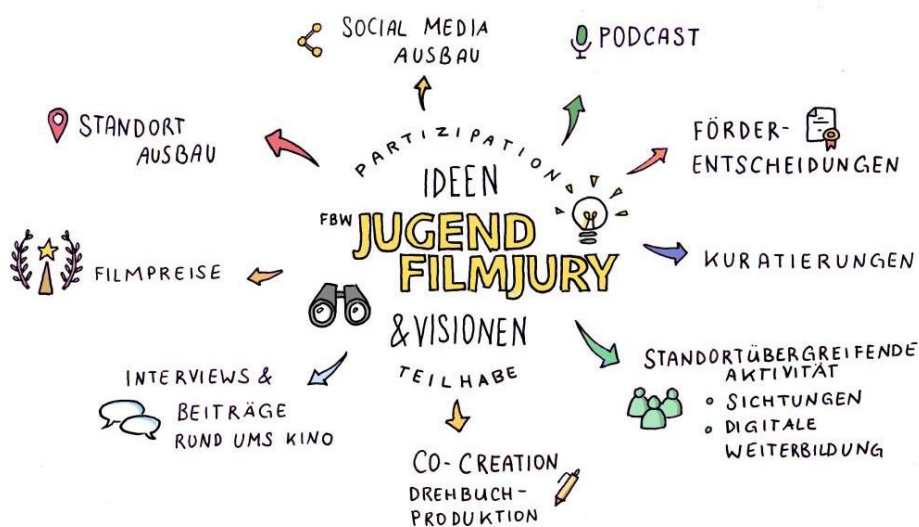 SOCIAL MEDIA
AUSBAU
PODCAST
STANDORT
AUSBAU
FÖRDER-
ENTSCHEIDUNGEN
PARTIZIPATION
IDEEN
FBW JUGEND
FILMJURY
& VISIONEN
TEILHABE
FILMPREISE
KURATIERUNGEN
INTERVIEWS &
BEITRÄGE
RUND UMS KINO
STANDORTÜBERGREIFENDE
AKTIVITÄT
• SICHTUNGEN
• DIGITALE
WEITERBILDUNG
CO-CREATION
DREHBUCH-
PRODUKTION